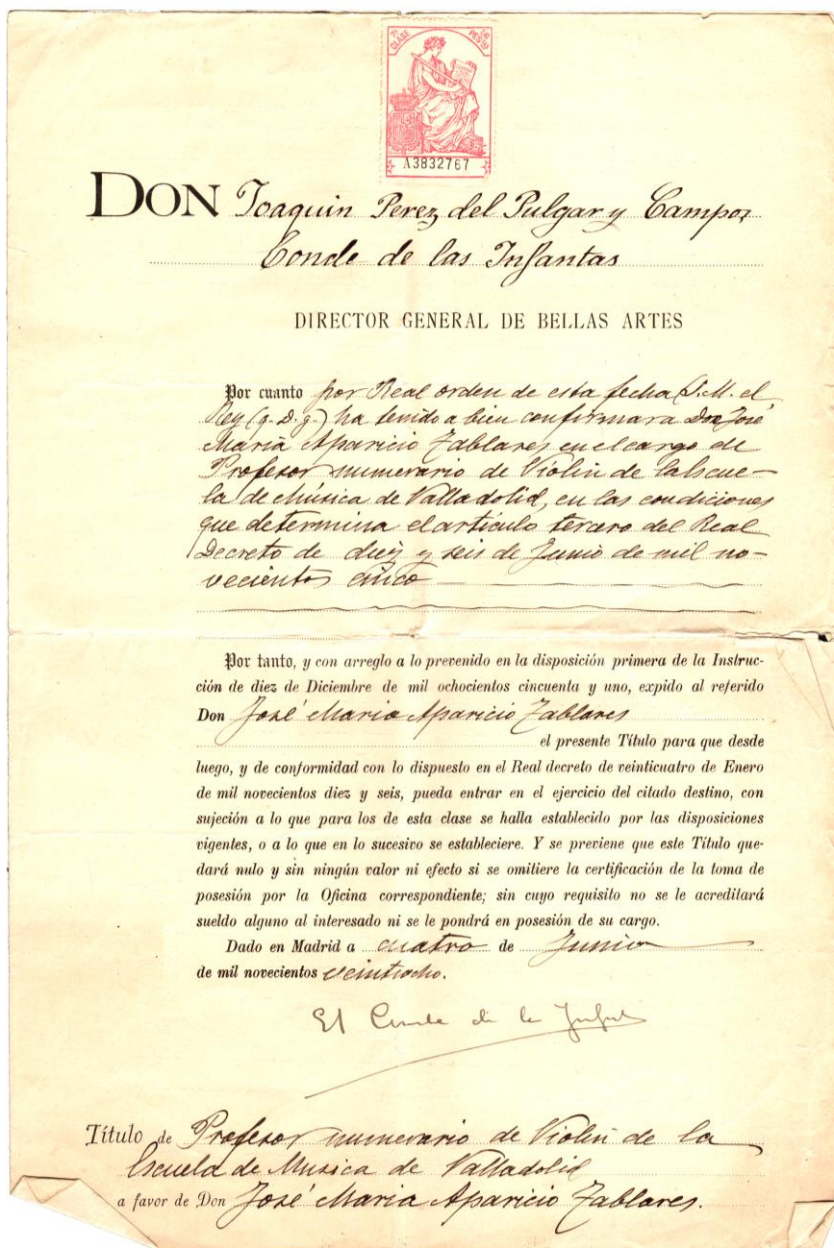 7ª CLASE
PESTAS
A3832767
DON Joaquin Perez del Pulgar y Campos
Conde de las Infantas
DIRECTOR GENERAL DE BELLAS ARTES
Por cuanto por Real orden de esta fecha S.M. el
Rey (q. D. g.) ha tenido a bien confirmar a Dn José
Maria Aparicio Zablares en el cargo de
Profesor numerario de Violin de la Escue-
la de Música de Valladolid, en las condiciones
que determina el artículo tercero del Real
Decreto de diez y seis de Junio de mil no-
vecientos cinco
Por tanto, y con arreglo a lo prevenido en la disposición primera de la Instruc-
ción de diez de Diciembre de mil ochocientos cincuenta y uno, expido al referido
Don José Maria Aparicio Zablares
el presente Título para que desde
luego, y de conformidad con lo dispuesto en el Real decreto de veinticuatro de Enero
de mil novecientos diez y seis, pueda entrar en el ejercicio del citado destino, con
sujeción a lo que para los de esta clase se halla establecido por las disposiciones
vigentes, o a lo que en lo sucesivo se estableciere. Y se previene que este Título que-
dará nulo y sin ningún valor ni efecto si se omitiere la certificación de la toma de
posesión por la Oficina correspondiente; sin cuyo requisito no se le acreditará
sueldo alguno al interesado ni se le pondrá en posesión de su cargo.
Dado en Madrid a cuatro de Junio
de mil novecientos veintiocho.
El Conde de las Infantas
Título de Profesor numerario de Violin de la
Escuela de Musica de Valladolid
a favor de Don José Maria Aparicio Zablares.